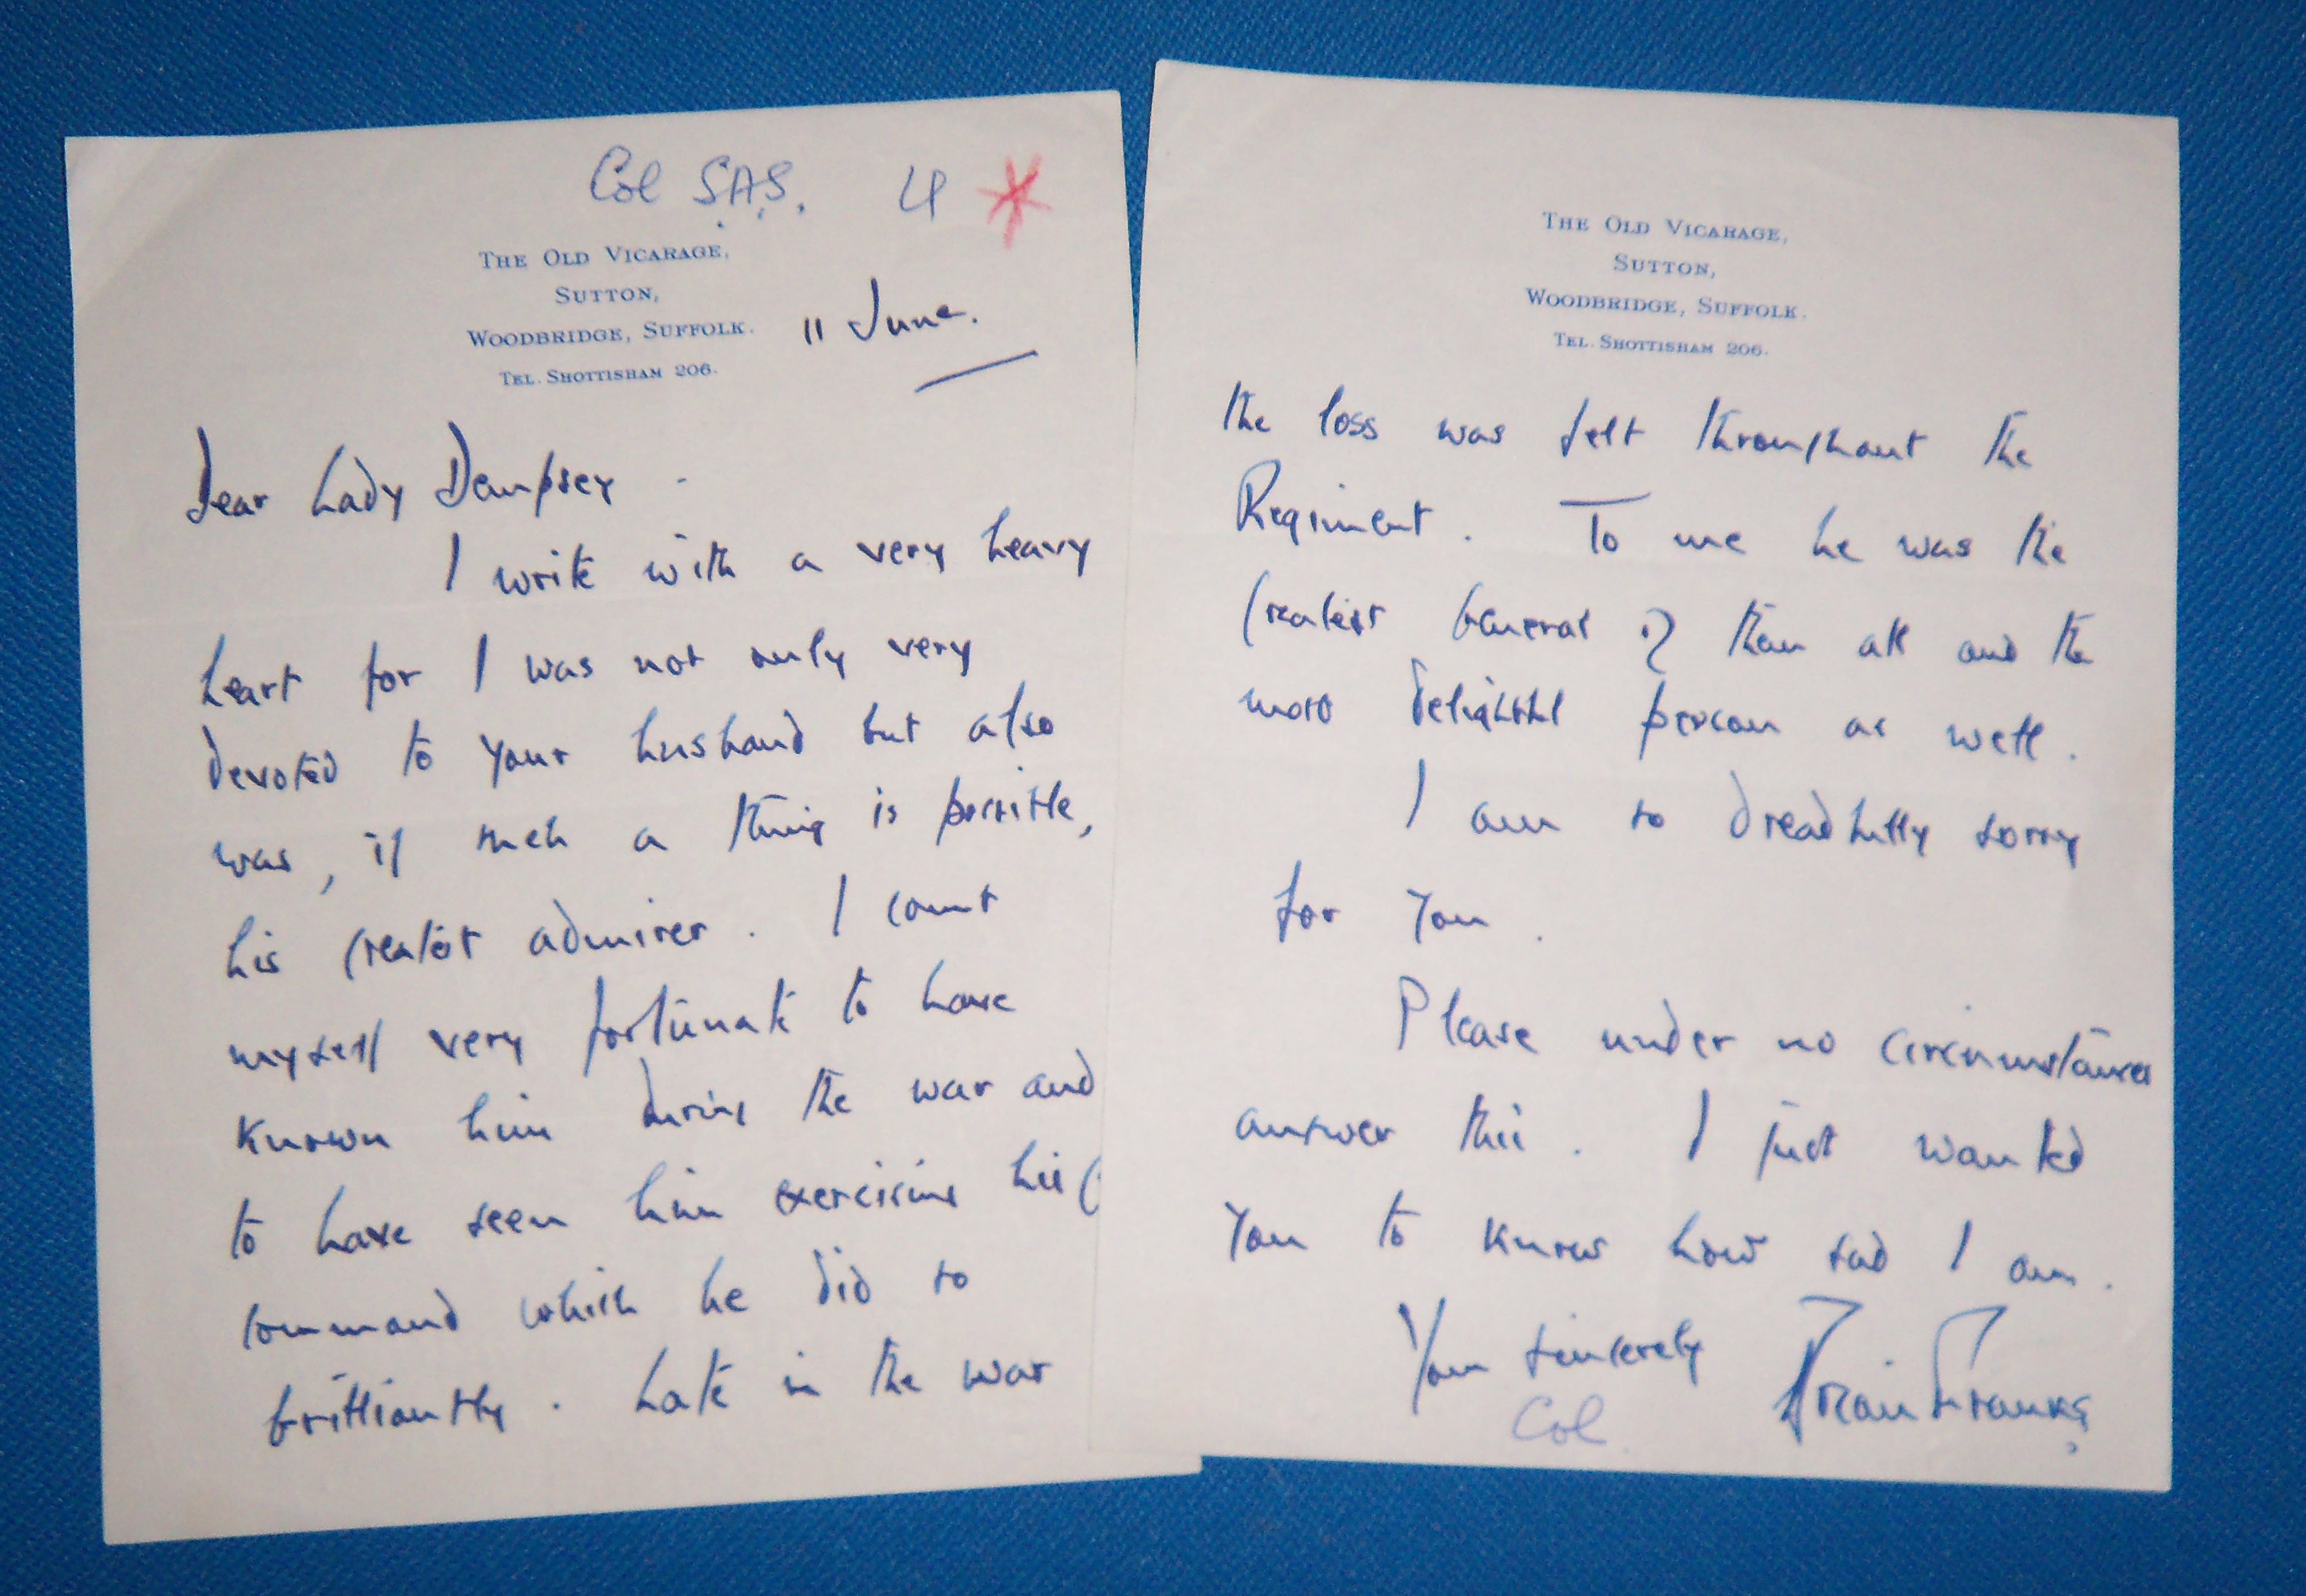 Col S.A.S. 4
THE OLD VICARAGE,
SUTTON,
WOODBRIDGE, SUFFOLK.
TEL. SHOTTISHAM 206.
11 June.
Dear Lady Dempsey -
I write with a very heavy
heart for I was not only very
devoted to your husband but also
was, if such a thing is possible,
his greatest admirer. I count
myself very fortunate to have
known him during the war and
to have seen him exercising his
command which he did so
brilliantly. Late in the war
THE OLD VICARAGE,
SUTTON,
WOODBRIDGE, SUFFOLK.
TEL. SHOTTISHAM 206.
the loss was felt throughout the
Regiment. To me he was the
greatest General of them all and the
most delightful person as well.
I am so dreadfully sorry
for you.
Please under no circumstances
answer this. I just wanted
you to know how sad I am.
Your sincerely
Brian Franks
Col.